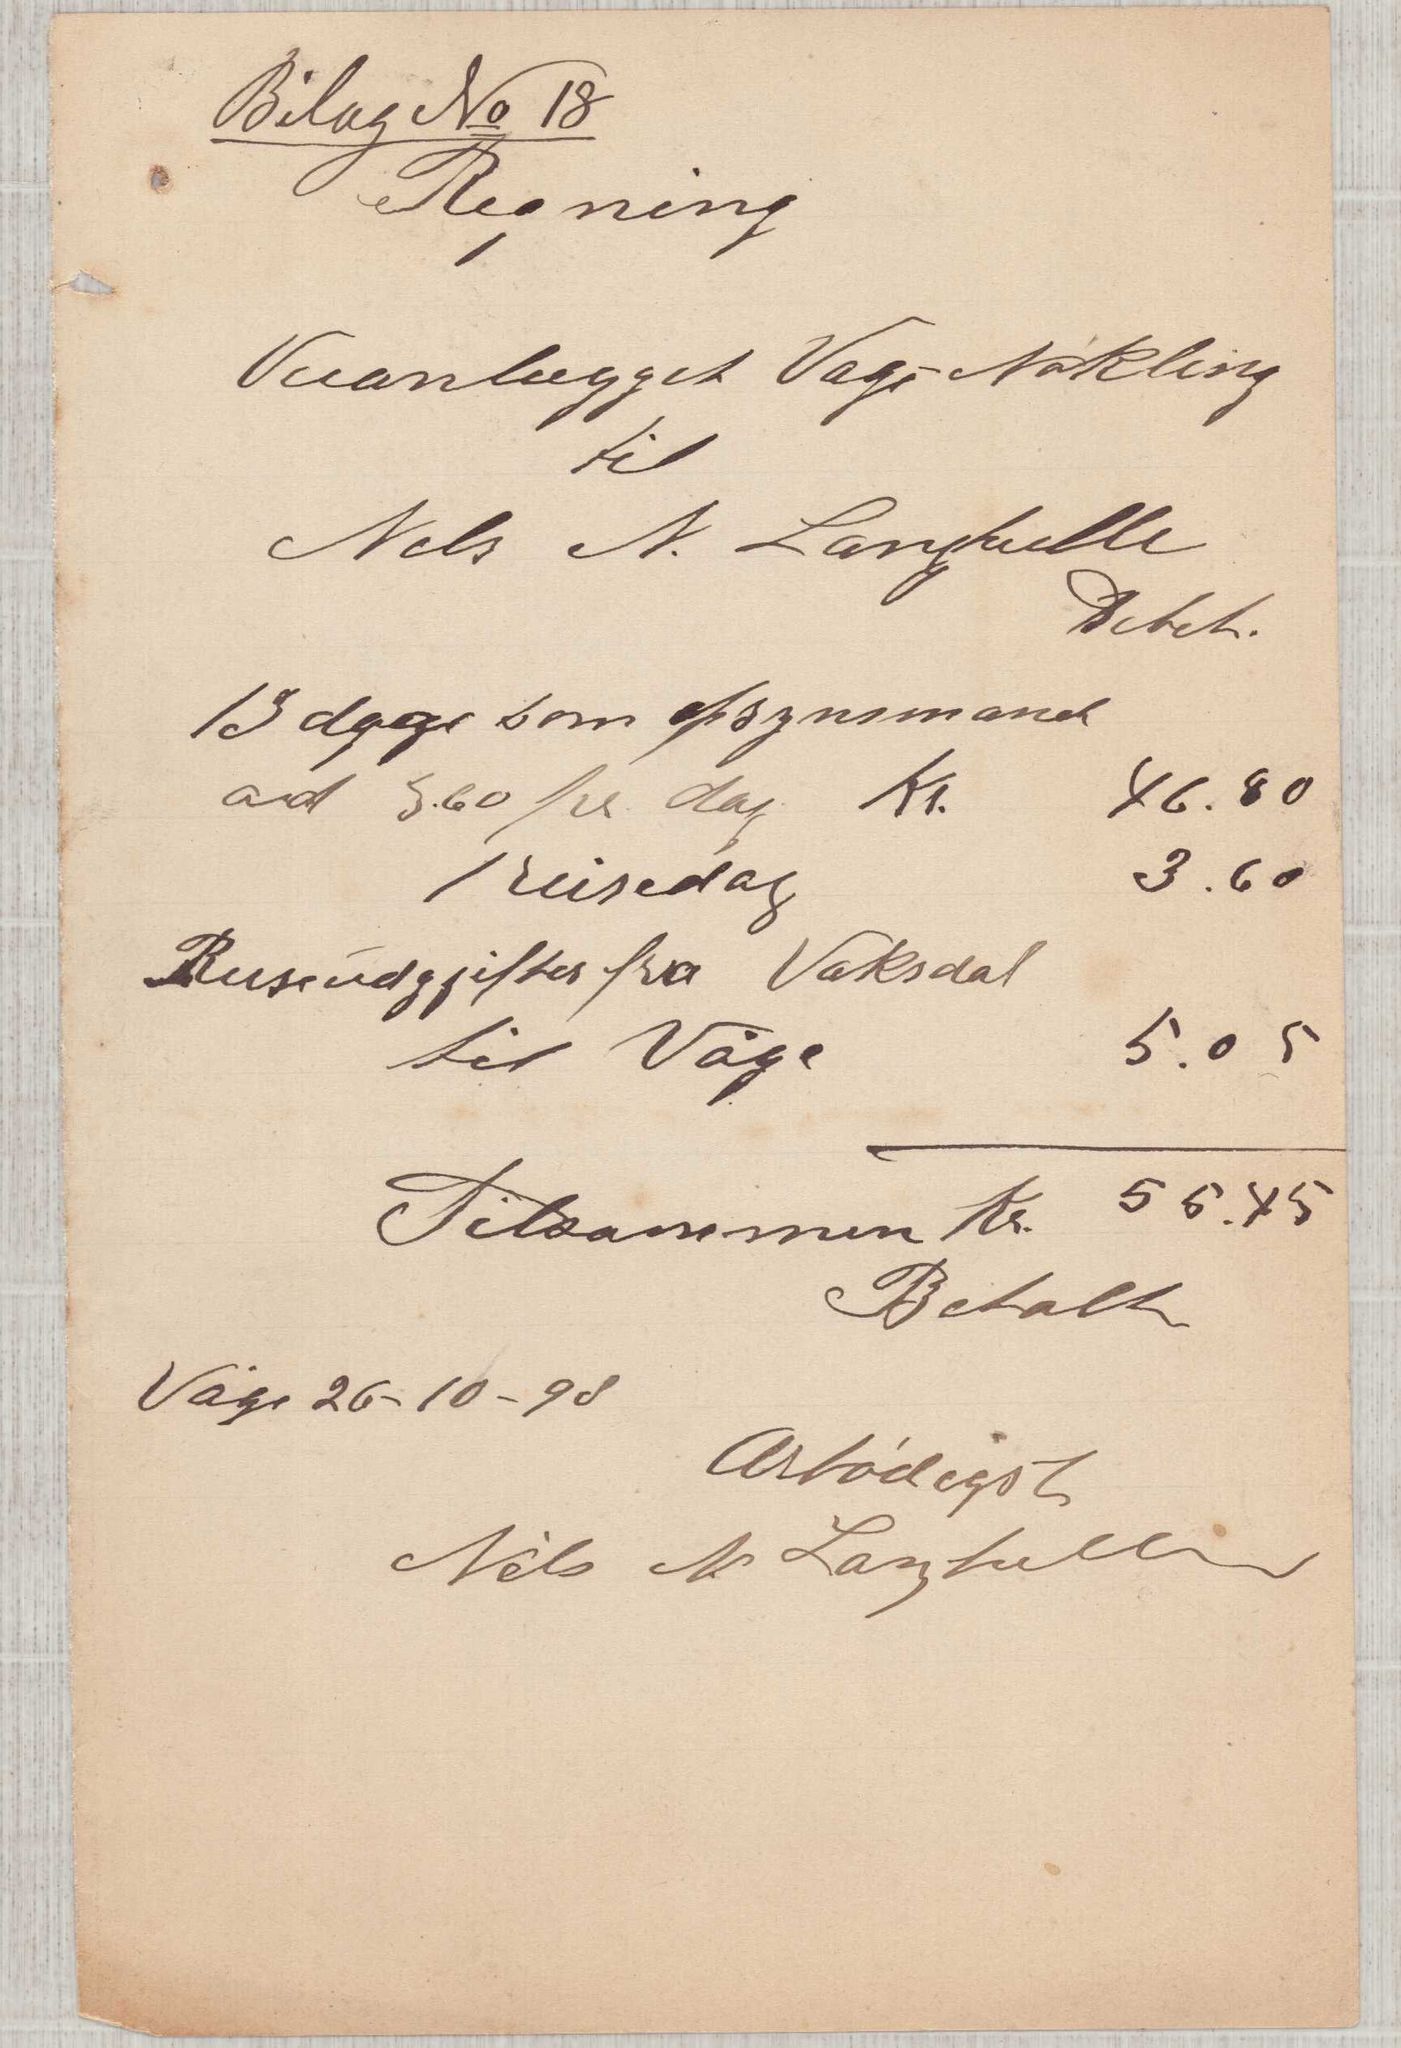 Bilag No 18
Regning
Veianlægget Vage Nökling
til
Nels N. Langhelle
Debet.
13 dage som opsynsmand
ad 3.60 pr dag Kr. 46.80
1 reisedag 3.60
Reiseudgifter fra Vaksdal
til Våge 5.05
Tilsammen Kr. 55.45
Betalt
Våge 26-10-98
Ærbödigst
Nels N Langhelle